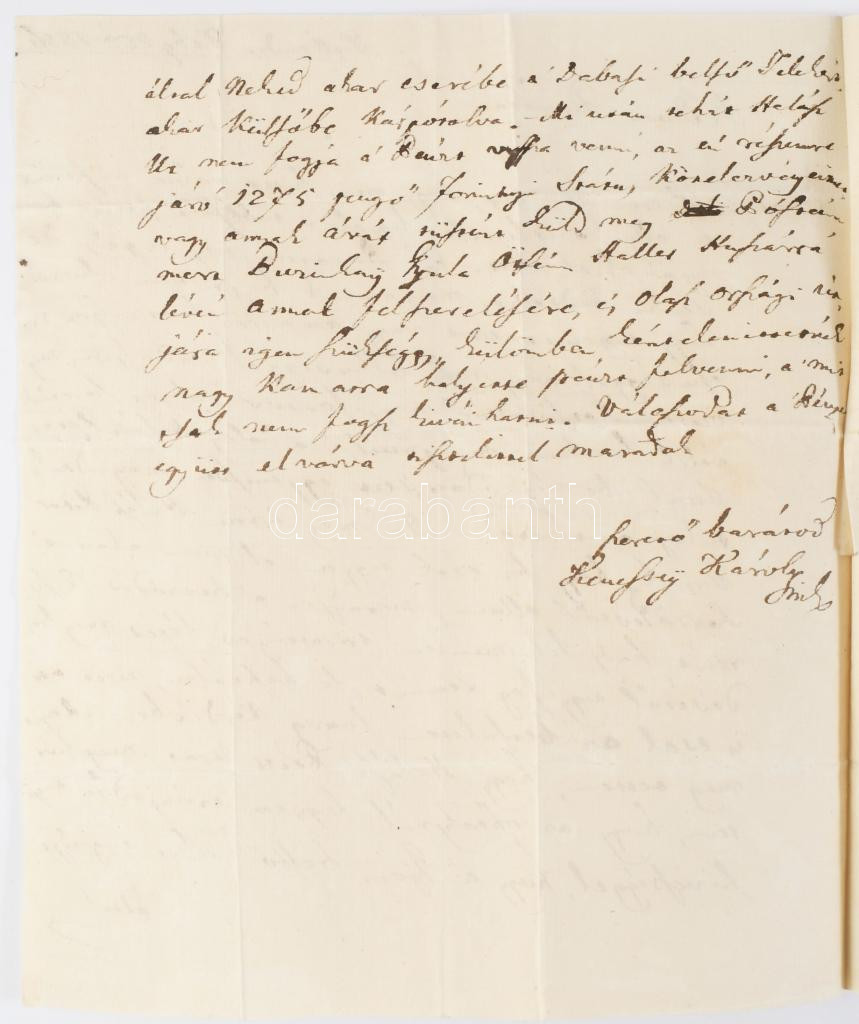 által Neked akar cserébe a' Dabasi belső Telekért
akar Külsőbe Kárpótolva. Mi után tehát Halász
Ur nem fogja a' Pénzt vissza venni, az én részemre
járó 1275 pengő forintyi Státus Kötelezvényeimet
vagy annak árát tüstént küld meg Póstán
mert Gyula Öcsém Haller Huszárrá
lévén annak felszerelésére, és Olasz országi
jára igen szükség, külömben kéntelenittetnék
nagy Kamatra helyette pénzt felvenni, a' mit
Tsak nem fogsz kivánhatni. Válaszodat a' Pénzel
együtt elvárva tisztelettel maradok
darabanth
szerető barátod
Kenessey Károly